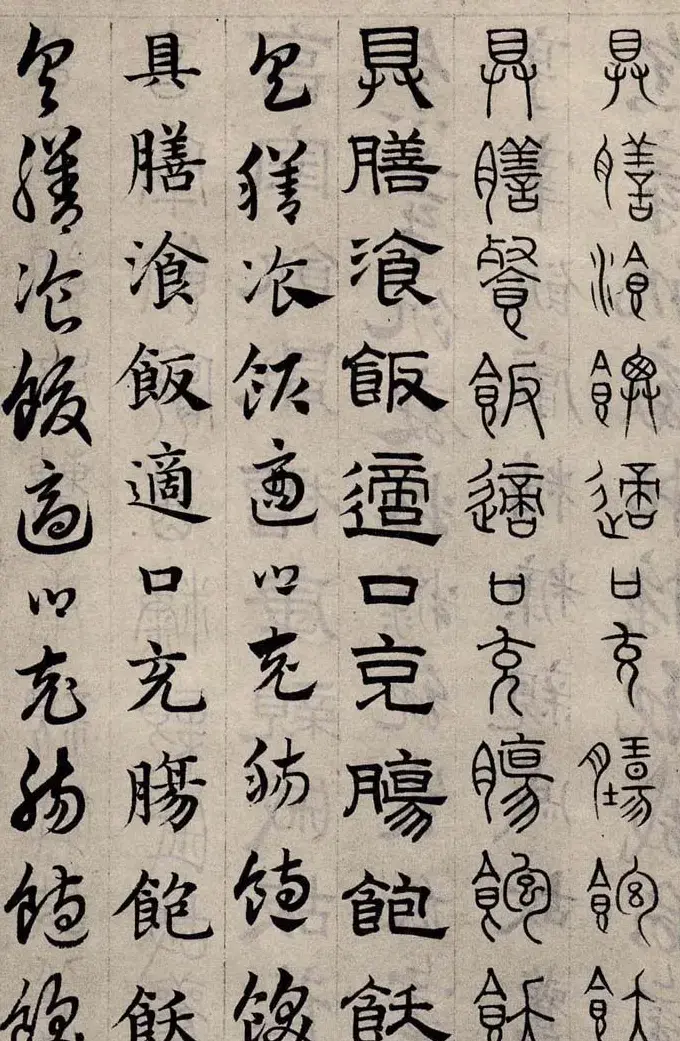 具膳湌飰適口充腸飽飫
具膳餐飯適口充膓飽飫
具膳湌飯適口充膓飽飫
具膳湌飯適口充腸飽飫
具膳湌飯適口充膓飽飫
具膳湌飯適口充腸飽飫